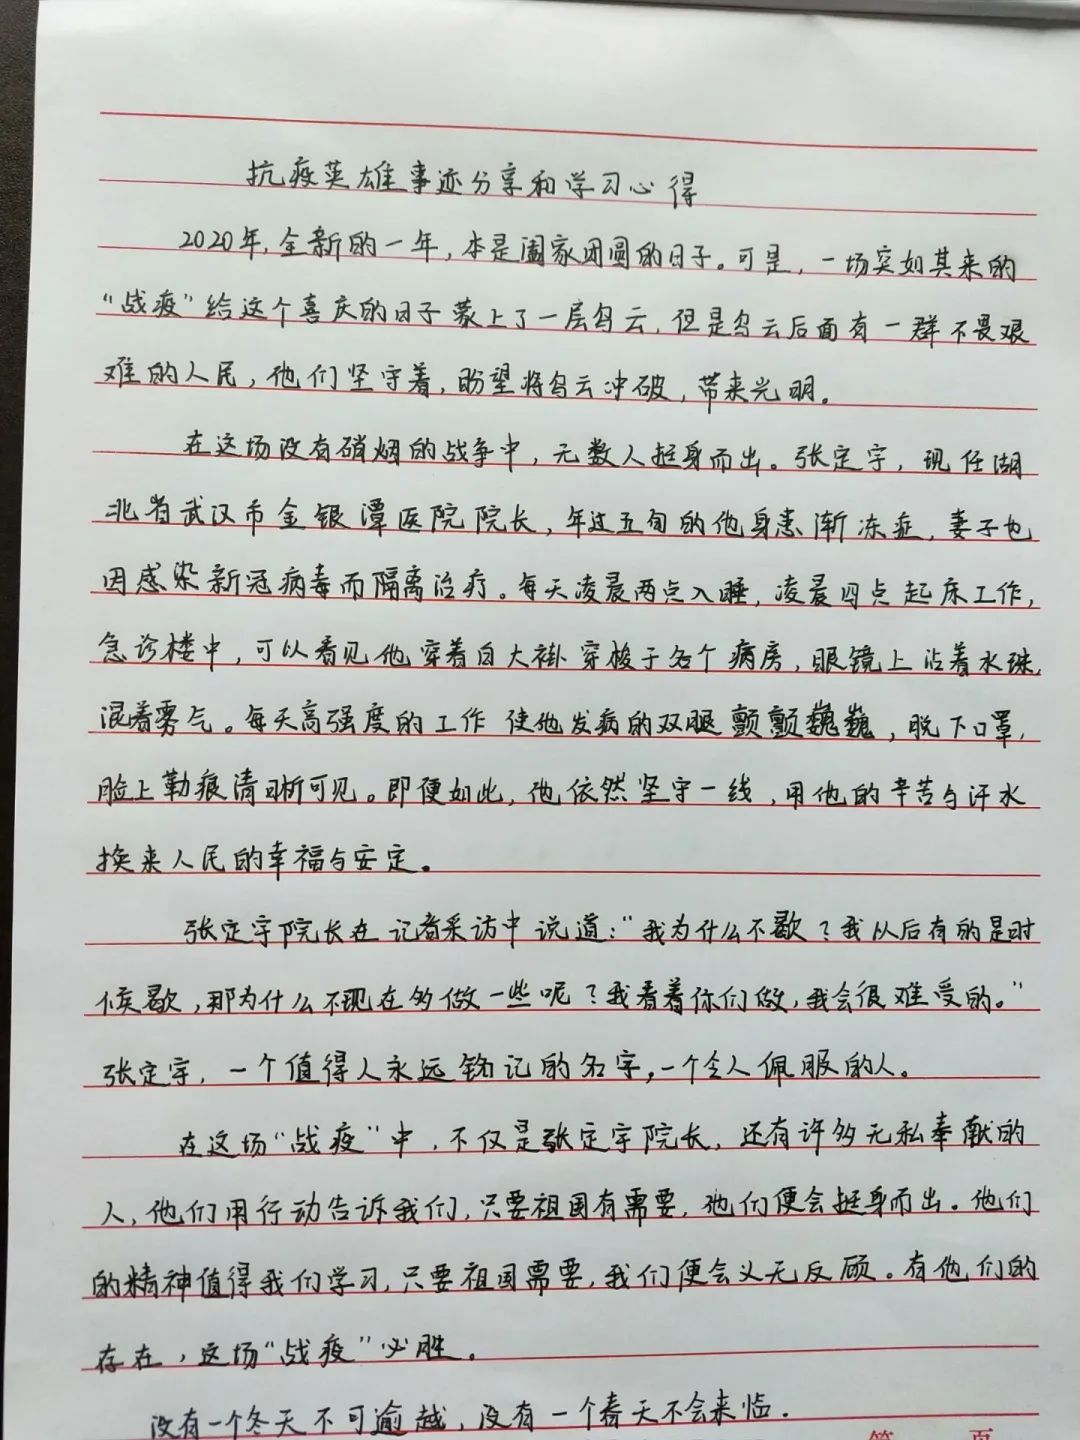 抗疫英雄事迹分享和学习心得
2020年,全新的一年,本是阖家团圆的日子。可是,一场突如其来的
“战疫”给这个喜庆的日子蒙上了一层乌云,但是乌云后面有一群不畏艰
难的人民,他们坚守着,盼望将乌云冲破,带来光明。
在这场没有硝烟的战争中,无数人挺身而出。张定宇,现任湖
北省武汉市金银潭医院院长,年过五旬的他身患渐冻症,妻子也
因感染新冠病毒而隔离治疗。每天凌晨两点入睡,凌晨四点起床工作,
急诊楼中,可以看见他穿着白大褂穿梭于各个病房,眼镜上沾着水珠,
混着雾气。每天高强度的工作使他发病的双腿颤颤巍巍,脱下口罩,
脸上勒痕清晰可见。即便如此,他依然坚守一线,用他的辛苦与汗水
换来人民的幸福与安定。
张定宇院长在记者采访中说道:“我为什么不歇?我以后有的是时
候歇,那为什么不现在多做一些呢?我看着你们做,我会很难受的。”
张定宇,一个值得人永远铭记的名字,一个令人佩服的人。
在这场“战疫”中,不仅是张定宇院长,还有许多无私奉献的
人,他们用行动告诉我们,只要祖国有需要,他们便会挺身而出。他们
的精神值得我们学习,只要祖国需要,我们便会义无反顾。有他们的
存在,这场“战疫”必胜。
没有一个冬天不可逾越,没有一个春天不会来临.
第 页